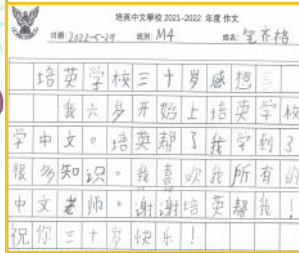 培英中文學校 2021-2022 年度 作文
日期: 2022-5-29 班別: M4 姓名:
培英学校三十岁感想
我六岁开始上培英学校
学中文。培英帮了我学到了
很多知识。我喜欢我所有的
中文老师。谢谢培英帮我!
祝你三十岁快乐!